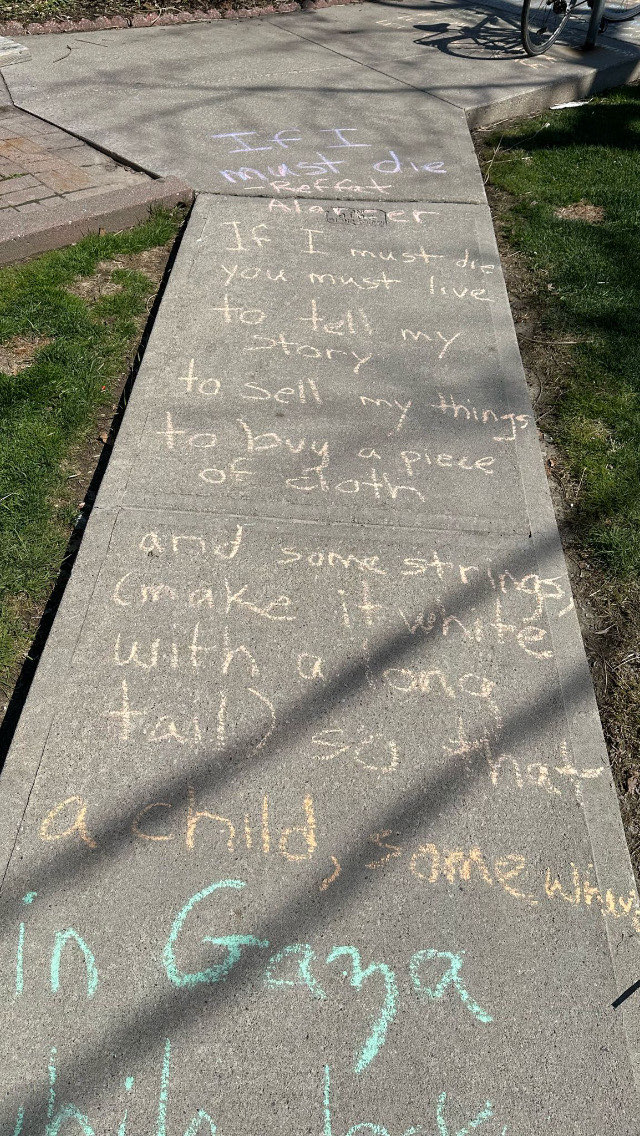 If I
must die
- Reffat
Alareer
If I must die
you must live
to tell my
story
to sell my things
to buy a piece
of cloth
and some strings,
(make it white
with a long
tail) so that
a child, somewhere
in Gaza
while